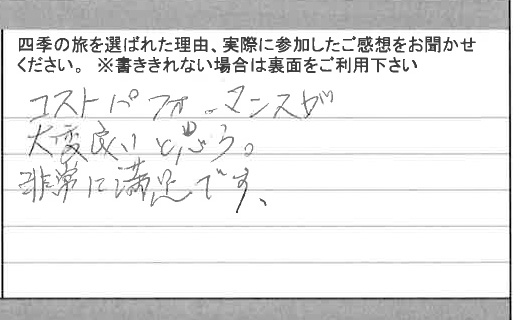 四季の旅を選ばれた理由、実際に参加したご感想をお聞かせ
ください。 ※書ききれない場合は裏面をご利用下さい
コストパフォーマンスが
大変良いと思う。
非常に満足です、